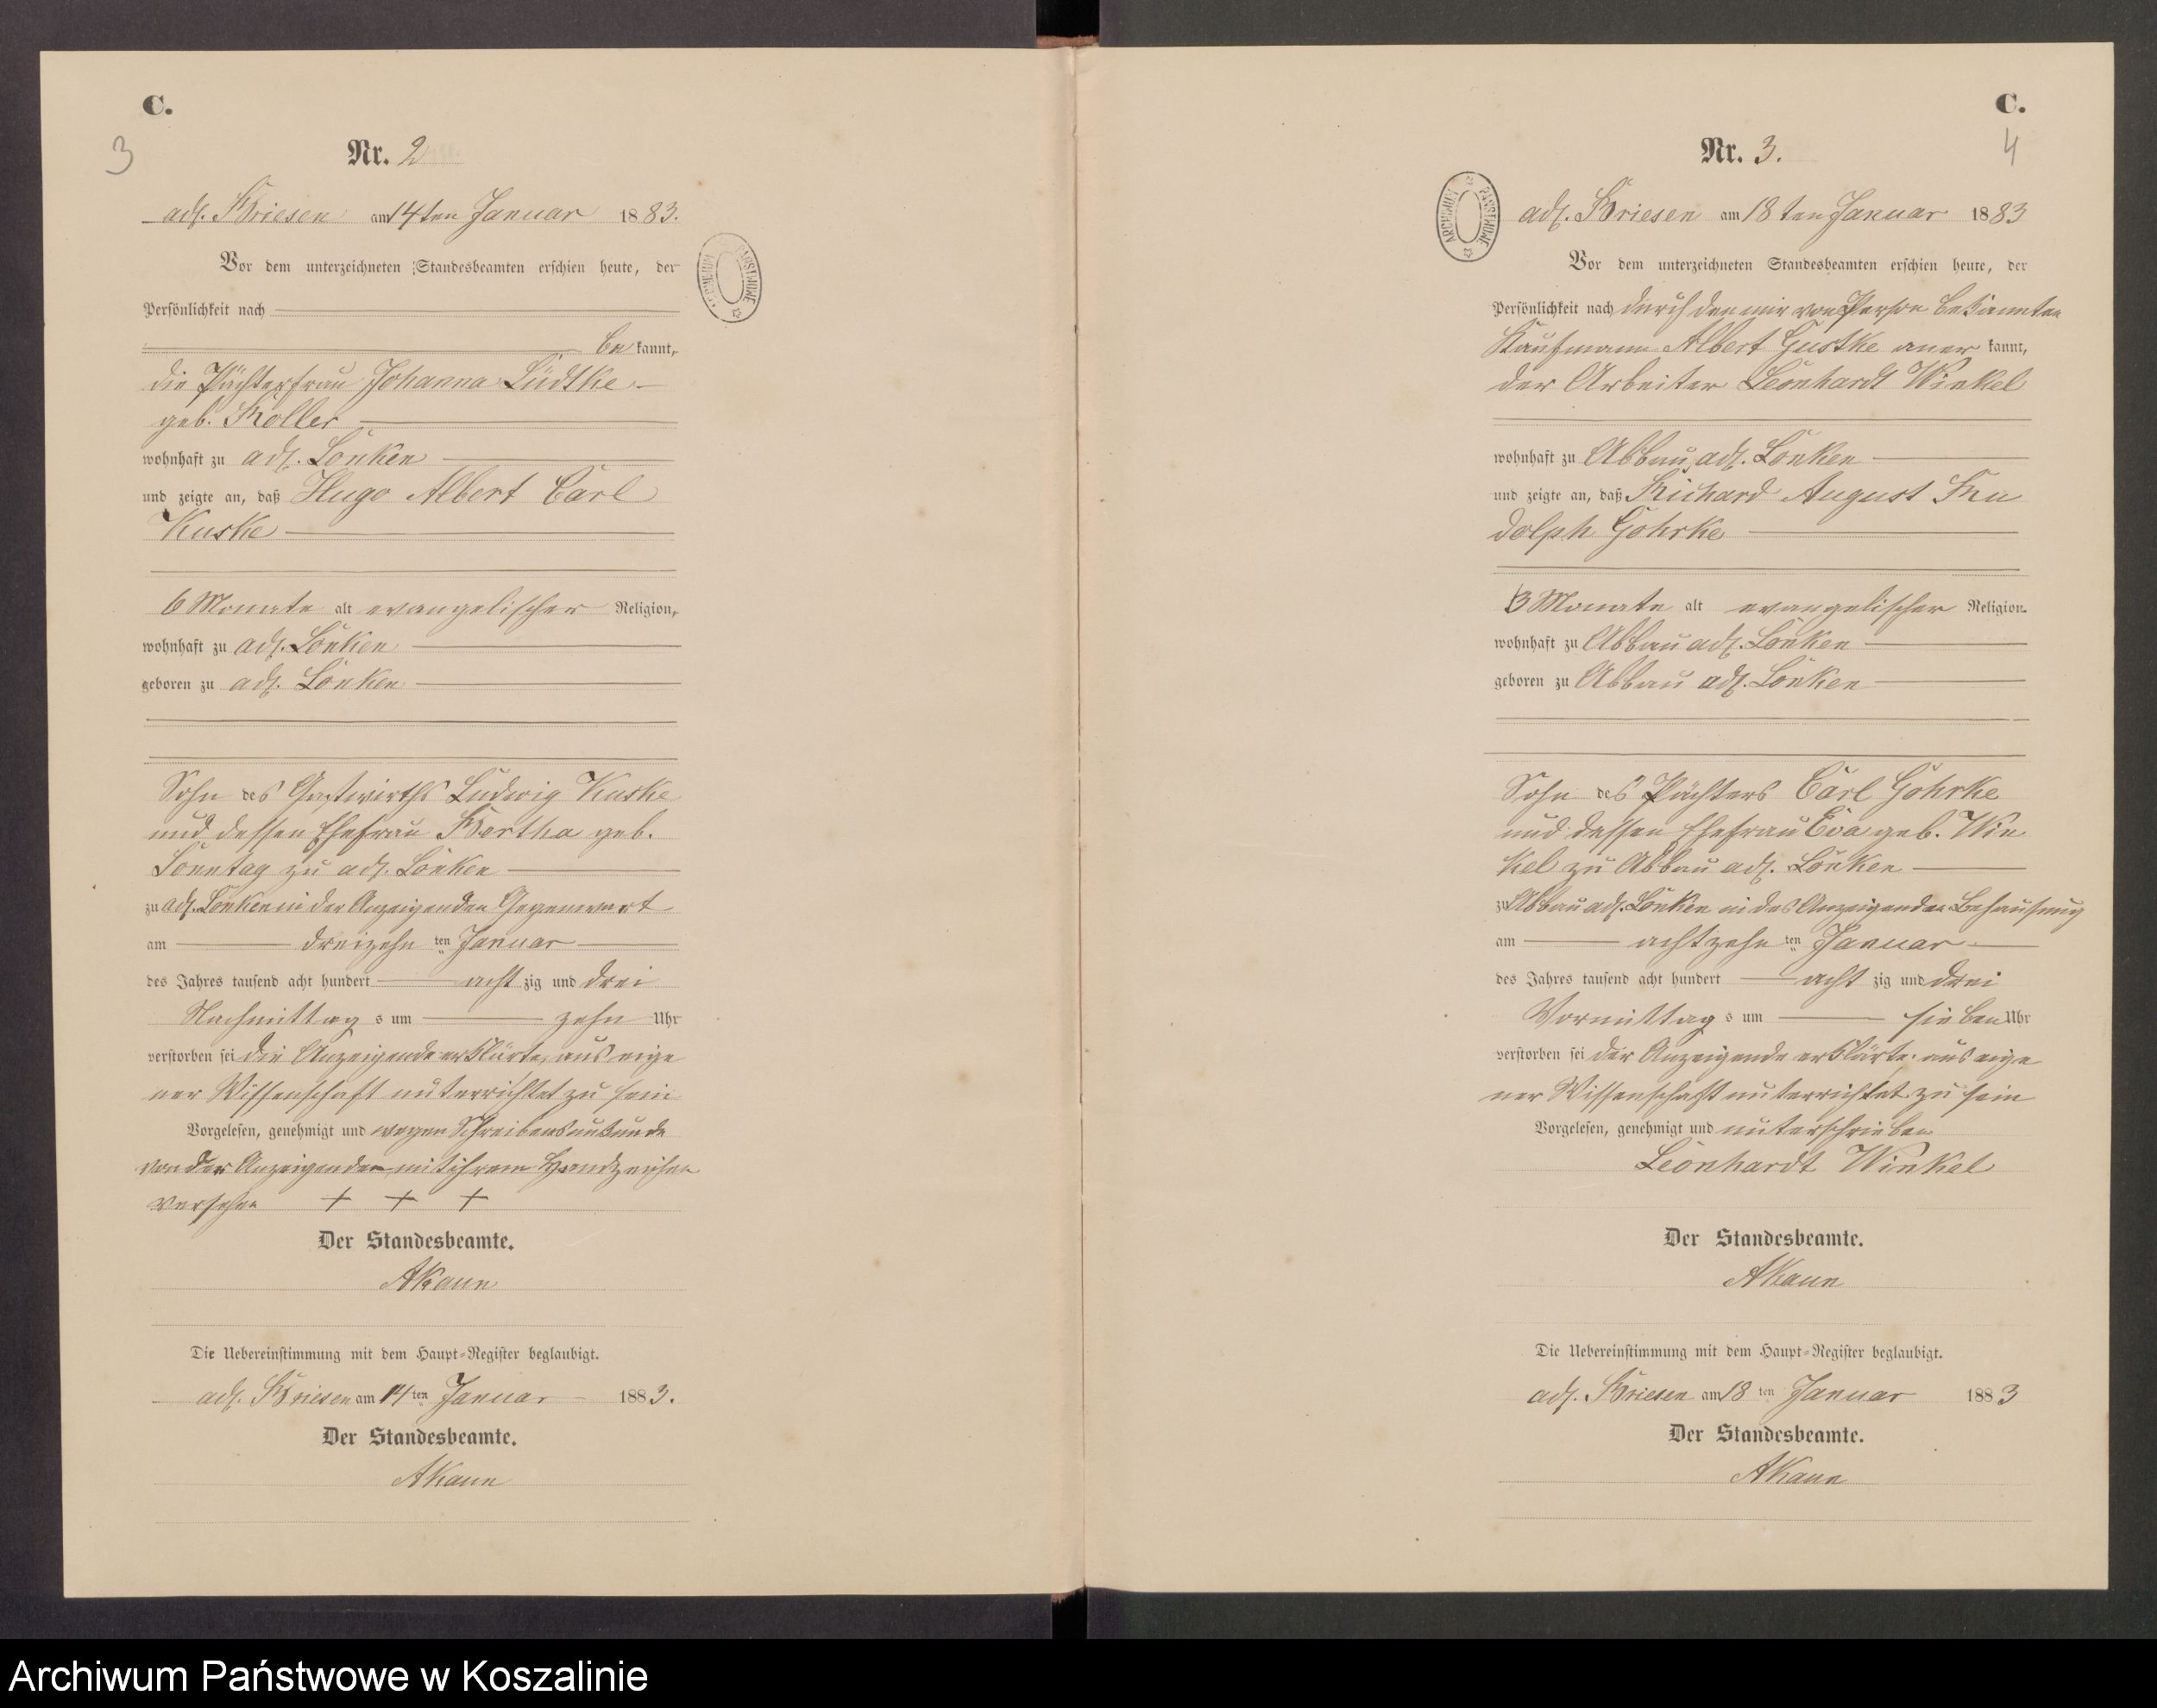 C.
3
Nr. 2
adl. Briesen am 14ten Januar 1883.
Vor dem unterzeichneten Standesbeamten erschien heute, der
Persönlichkeit nach
bekannt,
die Pächterfrau Johanna Lüdtke
geb. Röller
wohnhaft zu adl. Lonken
und zeigte an, daß Hugo Albert Carl
Kuske
6 Monate alt evangelischer Religion,
wohnhaft zu adl. Lonken
geboren zu adl. Lonken
Sohn des Gastwirths Ludwig Kuske
und dessen Ehefrau Bertha geb.
Sonntag zu adl. Lonken
zu adl. Lonken in der Anzeigenden Gegenwart
am dreizehnten Januar
des Jahres tausend acht hundert achtzig und drei
Nachmittags um zehn Uhr
verstorben sei die Anzeigende erklärte, aus eige
ner Wissenschaft unterrichtet zu sein
Vorgelesen, genehmigt und wegen Schreibensunkunde
von der Anzeigenden mit ihrem Handzeichen
versehen + + +
Der Standesbeamte.
AKaun
Die Uebereinstimmung mit dem Haupt-Register beglaubigt.
adl. Briesen am 14ten Januar 1883.
Der Standesbeamte.
AKaun
ARCHIWUM PAŃSTWOWE
C.
4
Nr. 3.
ARCHIWUM PAŃSTWOWE
adl. Briesen am 18ten Januar 1883
Vor dem unterzeichneten Standesbeamten erschien heute, der
Persönlichkeit nach durch den mir von Person bekannten
Kaufmann Albert Gustke anerkannt,
der Arbeiter Leonhardt Winkel
wohnhaft zu Abbau adl. Lonken
und zeigte an, daß Richard August Ru
dolph Gohrke
3 Monate alt evangelischer Religion.
wohnhaft zu Abbau adl. Lonken
geboren zu Abbau adl. Lonken
Sohn des Pächters Carl Gohrke
und dessen Ehefrau Eva geb. Win
kel zu Abbau adl. Lonken
zu Abbau adl. Lonken in des Anzeigenden Behausung
am achtzehnten Januar
des Jahres tausend acht hundert achtzig und drei
Vormittags um sieben Uhr
verstorben sei der Anzeigende erklärte, aus eige
ner Wissenschaft unterrichtet zu sein
Vorgelesen, genehmigt und unterschrieben
Leonhardt Winkel
Der Standesbeamte.
AKaun
Die Uebereinstimmung mit dem Haupt-Register beglaubigt.
adl. Briesen am 18ten Januar 1883
Der Standesbeamte.
AKaun
Archiwum Państwowe w Koszalinie